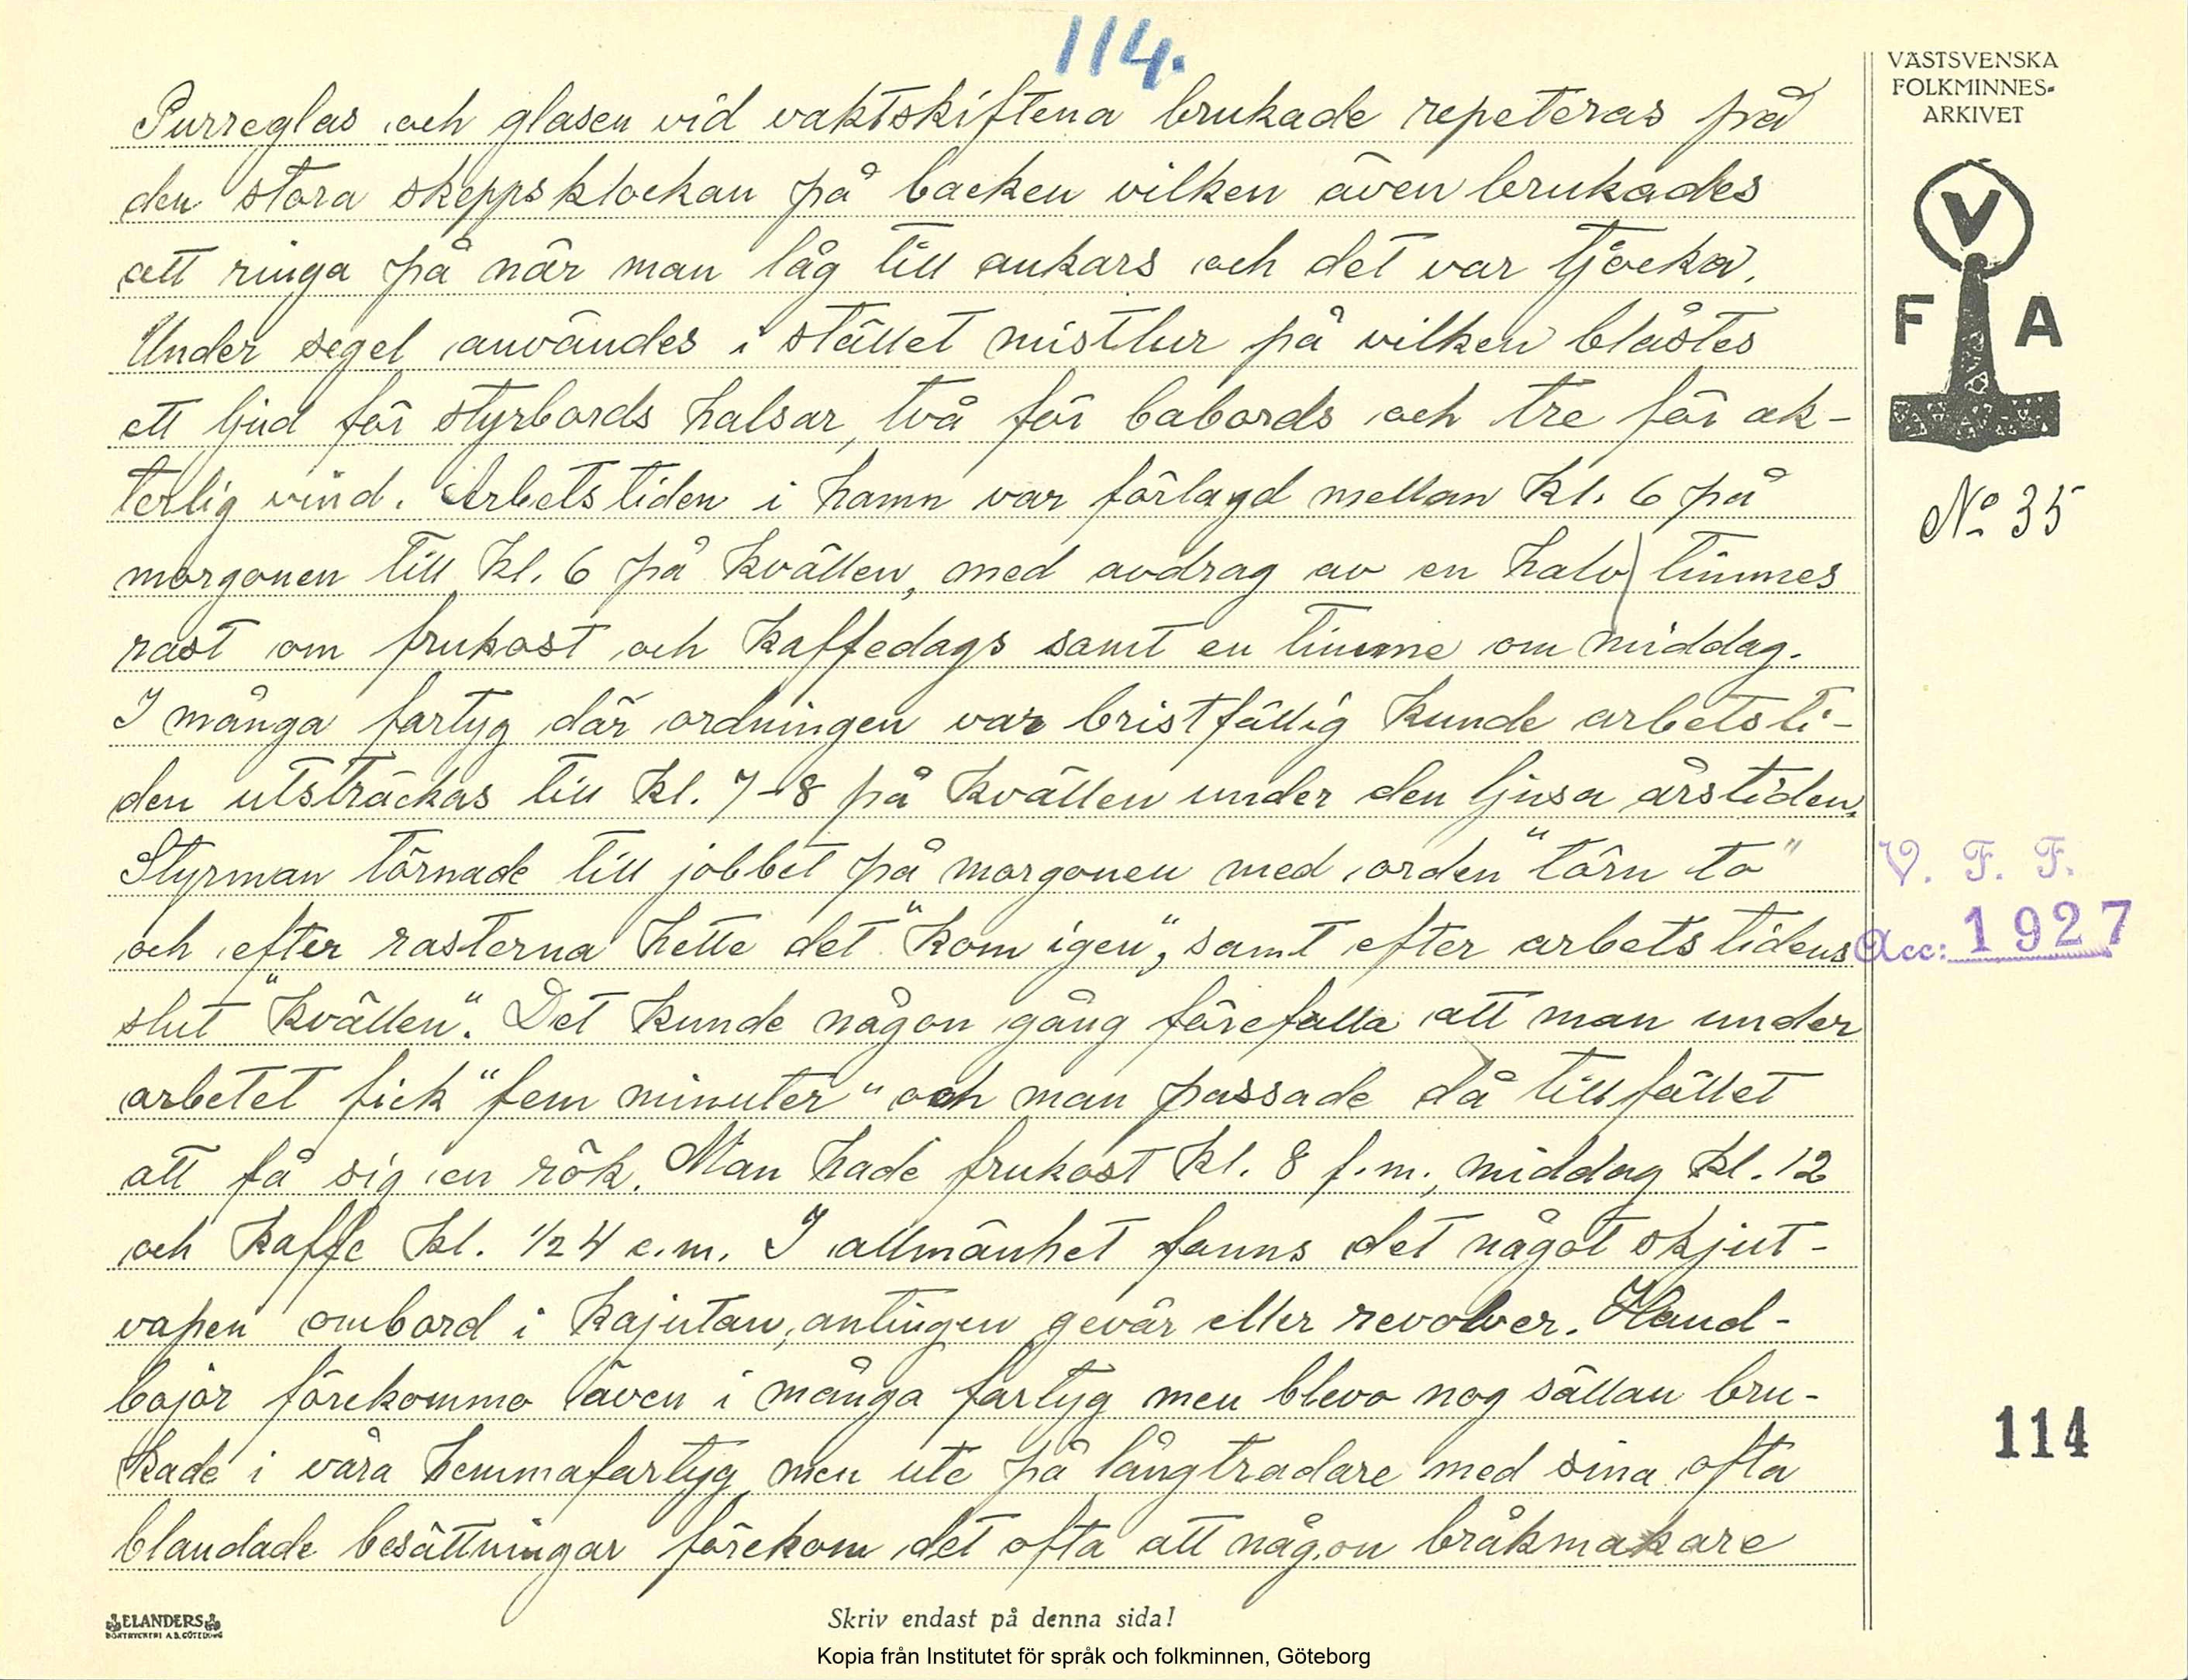 114.
VÄSTSVENSKA
FOLKMINNES-
ARKIVET
V
F A
No 35
Purreglas och glasen vid vaktskiftena brukade repeteras på
den stora skeppsklockan på backen vilken även brukades
att ringa på när man låg till ankars och det var tjocka.
Under segel användes i stället mistlur på vilken blåstes
ett ljud för styrbords halsar, två för babords och tre för ak-
terlig vind. Arbetstiden i hamn var förlagd mellan kl. 6 på
morgonen till kl. 6 på kvällen, med avdrag av en halv timmes
rast om frukost och kaffedags samt en timme om middag.
I många fartyg där ordningen var bristfällig kunde arbetsti-
den utsträckas till kl. 7-8 på kvällen under den ljusa årstiden.
Styrman törnade till jobbet på morgonen med orden "törn to"
och efter rasterna hette det "kom igen", samt efter arbetstidens
slut "kvällen". Det kunde någon gång förefalla att man under
arbetet fick "fem minuter" och man passade då tillfället
att få sig en rök. Man hade frukost kl. 8 f.m., middag kl. 12
och kaffe kl. 1/2 4 e.m. I allmänhet fanns det något skjut-
vapen ombord i kajutan, antingen gevär eller revolver. Hand-
bojor förekommo även i många fartyg men blevo nog sällan bru-
kade i våra hemmafartyg men ute på långtradare med sina ofta
blandade besättningar förekom det ofta att någon bråkmakare
V. F. F.
Acc: 1927
114
ELANDERS
BOKTRYCKERI A.B. GÖTEBORG
Skriv endast på denna sida!
Kopia från Institutet för språk och folkminnen, Göteborg